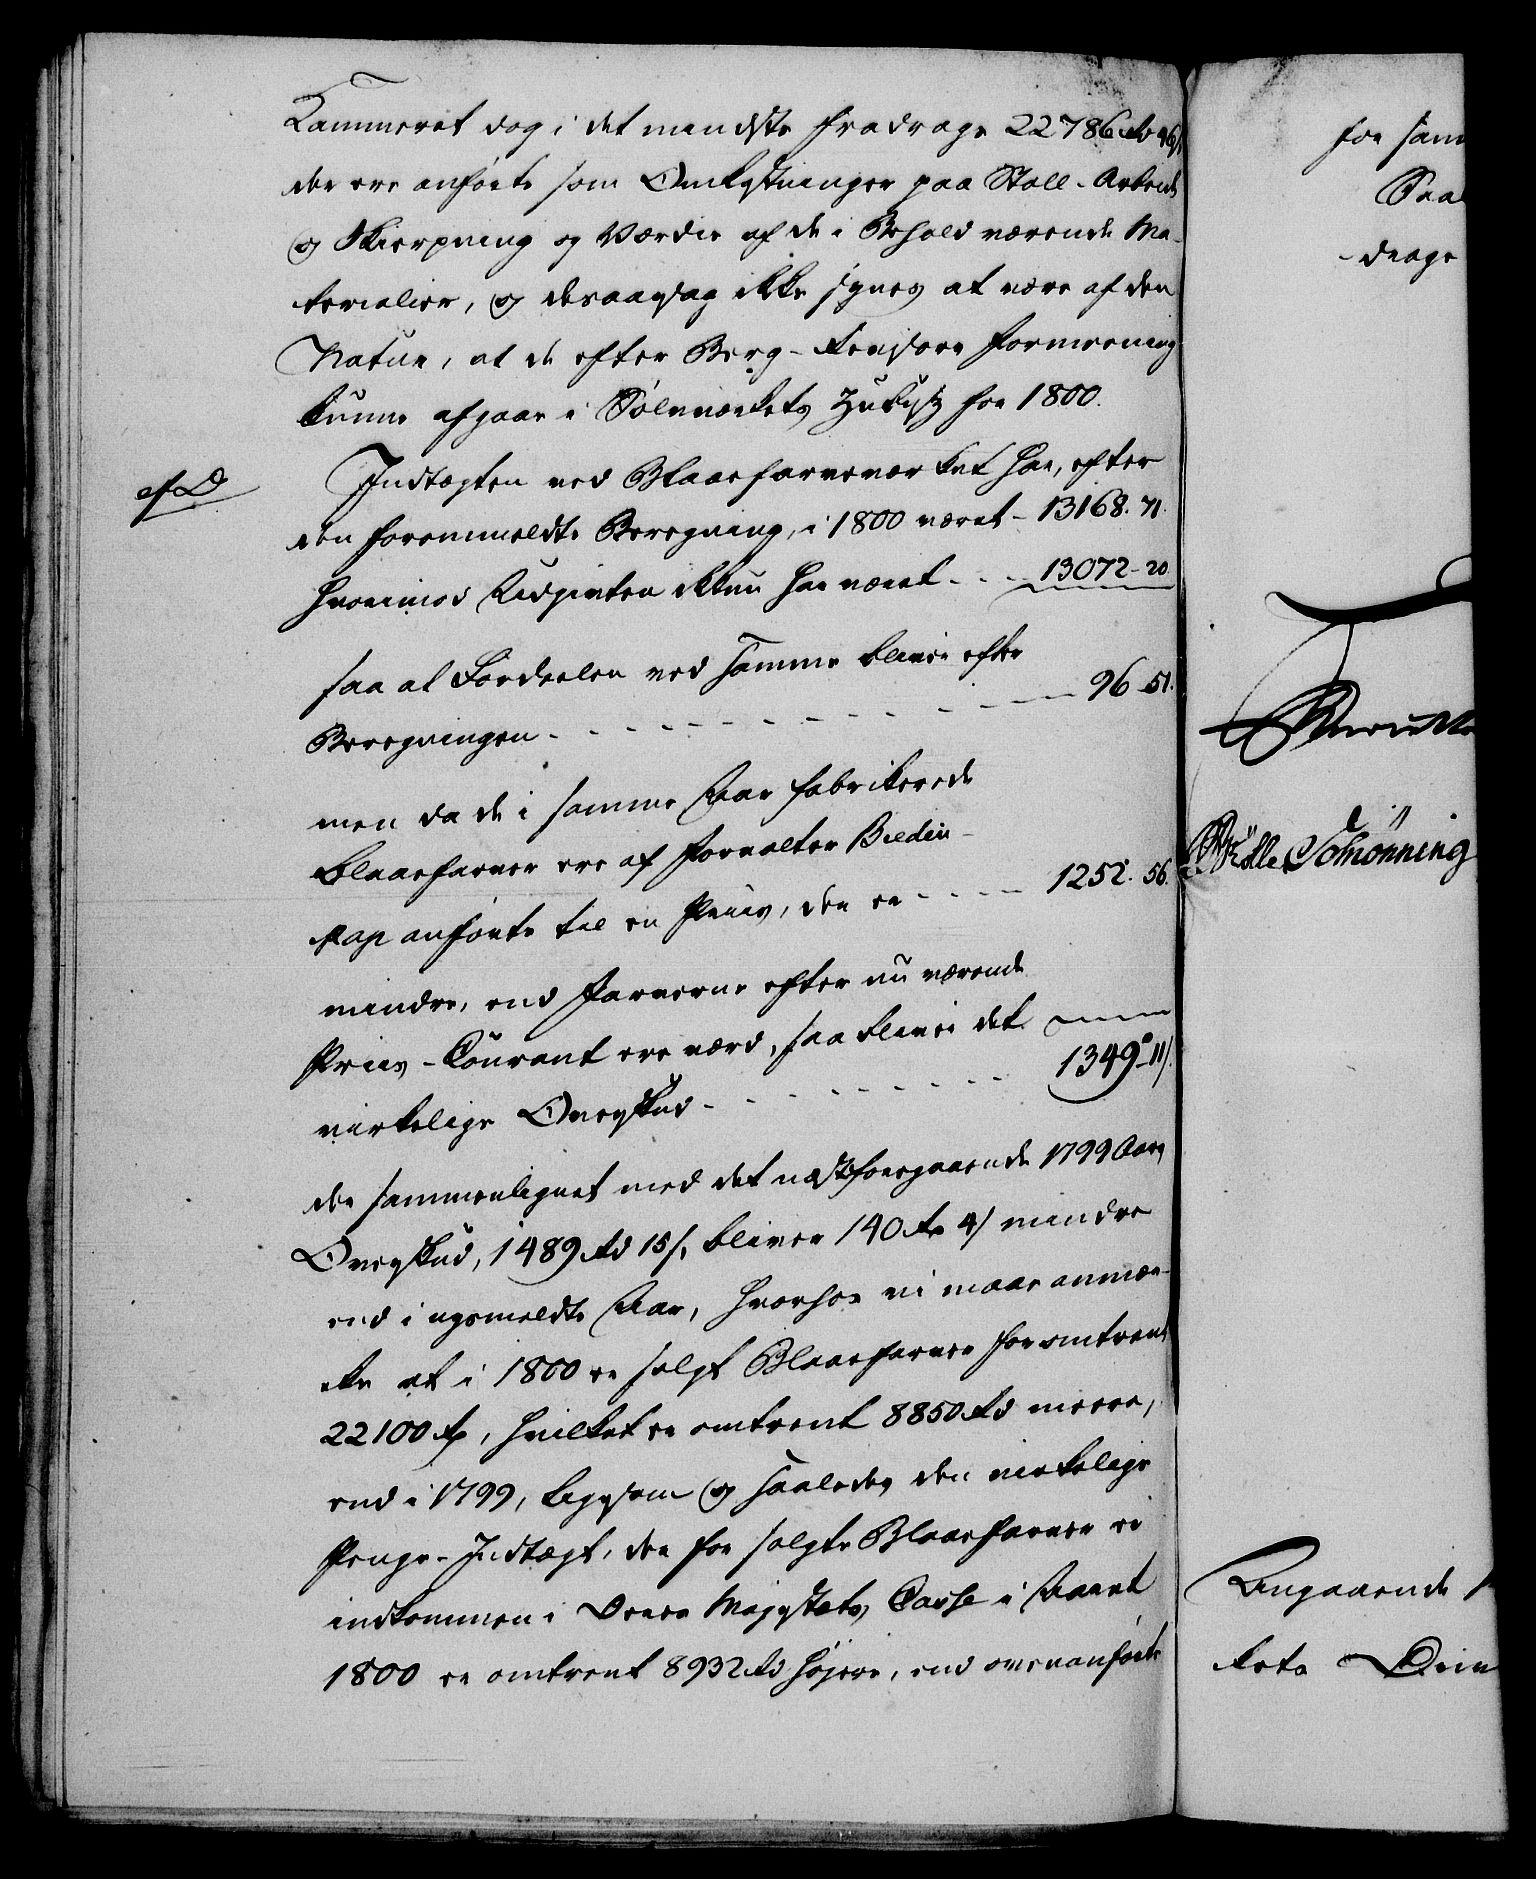 Kammeret dog i det mindste fradrage 22786 Rd 46 s
der ere anførte som Omkostninger paa Stoll-Arbeide
og Skierpning og Værdie af de i Behold værende Ma-
terialier, og desaarsag ikke synes at være af den
Natur, at de efter Berg- formeening
kunne afgaae i Sølvværkets Zubusz for 1800.
ad D
Indtægten ved Blaafarveværket har, efter
den foranmeldte Beregning, i 1800 været - 13168. 71.
hvorimod Udgivten ikkun har været - - - 13072 - 20
saa at Fordeelen ved samme bliver efter
Beregningen - - - 96 - 51.
men da de i samme Aar fabrikerede
Blaaefarver ere af Forvalter Bieden-
kap anførte til en Priis, der er - - - - 1252. 56.
mindre, end Farverne efter nu værende
Priis-Courant ere værd, saa bliver det
virkelige Overskud - - - 1349 - 11 s.
der sammenlignet med det næstforegaaende 1799 Aars
Overskud, 1489 Rd 15 s, bliver 140 Rd 4 s mindre
end i ugemeldte Aar, hvorhos vi maae anmær-
ke at i 1800 er solgt Blaaefarver for omtrent
22100 Rd, hvilket er omtrent 8850 Rd meere,
end i 1799, ligesom og saaledes den virkelige
Penge-Indtægt, der for solgte Blaaefarver er
indkommen i Deres Majestæts Casse i Aaret
1800 er omtrent 8932 Rd højere, end ovenanførte
for sam
Saa
drage
Schønning
Angaaende
kets